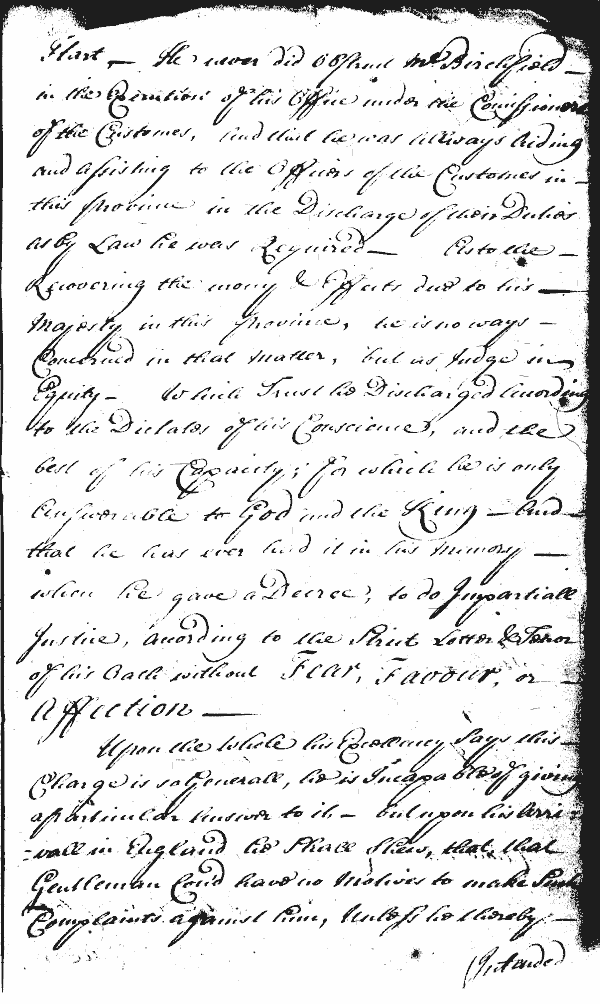 Hart, — He never did Obstruct Mr. Birchfield —
in the Execution of his Office under the Comissioners
of the Customes, And that he was Allways Aiding
and Assisting to the Officers of the Customes in —
this Province in the Discharge of their Duties
as by Law he was Required — As to the —
Recovering the mony & Effects due to his —
Majesty in this Province, he is no ways —
Concerned in that Matter, but as Judge in
Equity — Which Trust he Discharged According
to the Dictates of his Conscience, and the
best of his Capacity; for which he is only
Answerable to God and the King — And —
that he has ever had it in his Memory —
when he gave a Decree, to do Impartiall
Justice, according to the Strict Letter & Tenor
of his Oath without Fear, Favour, or —
Affection —
Upon the Whole his Excellency Says this —
Charge is so Generall, he is Incapable of giving
a Particular Answer to it — but upon his Arri-
-vall in England he Shall Shew, that that
Gentleman Coud have no Motives to make Such
Complaints against him, Unless he thereby —
Intended